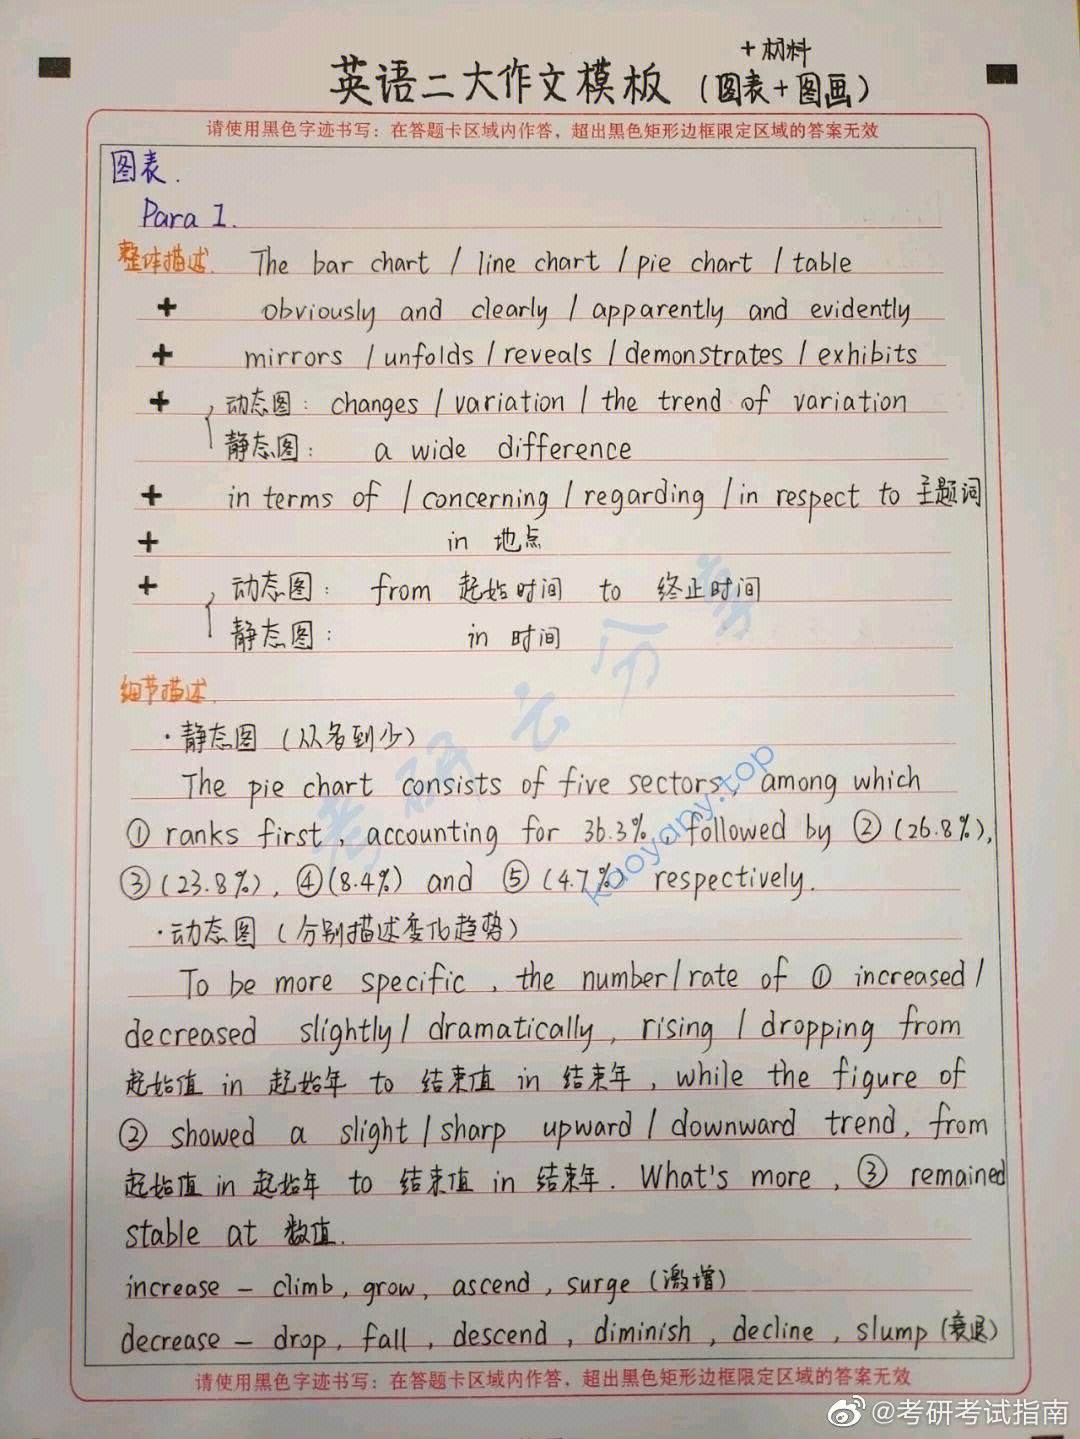 +材料
英语二大作文模板 (图表+图画)
请使用黑色字迹书写：在答题卡区域内作答，超出黑色矩形边框限定区域的答案无效
图表.
Para 1.
整体描述. The bar chart / line chart / pie chart / table
+ obviously and clearly / apparently and evidently
+ mirrors / unfolds / reveals / demonstrates / exhibits
+ 动态图: changes / variation / the trend of variation
静态图: a wide difference
+ in terms of / concerning / regarding / in respect to 主题词
+ in 地点
+ 动态图: from 起始时间 to 终止时间
静态图: in 时间
细节描述.
·静态图 (从多到少)
The pie chart consists of five sectors, among which
① ranks first, accounting for 36.3%, followed by ② (26.8%),
③ (23.8%), ④ (8.4%) and ⑤ (4.7%) respectively.
·动态图 (分别描述变化趋势)
To be more specific, the number/rate of ① increased/
decreased slightly/ dramatically, rising / dropping from
起始值 in 起始年 to 结束值 in 结束年, while the figure of
② showed a slight / sharp upward / downward trend, from
起始值 in 起始年 to 结束值 in 结束年. What's more, ③ remained
stable at 数值.
increase – climb, grow, ascend, surge (激增)
decrease – drop, fall, descend, diminish, decline, slump (衰退)
请使用黑色字迹书写：在答题卡区域内作答，超出黑色矩形边框限定区域的答案无效
考研云分享
kaoyany.top
@考研考试指南